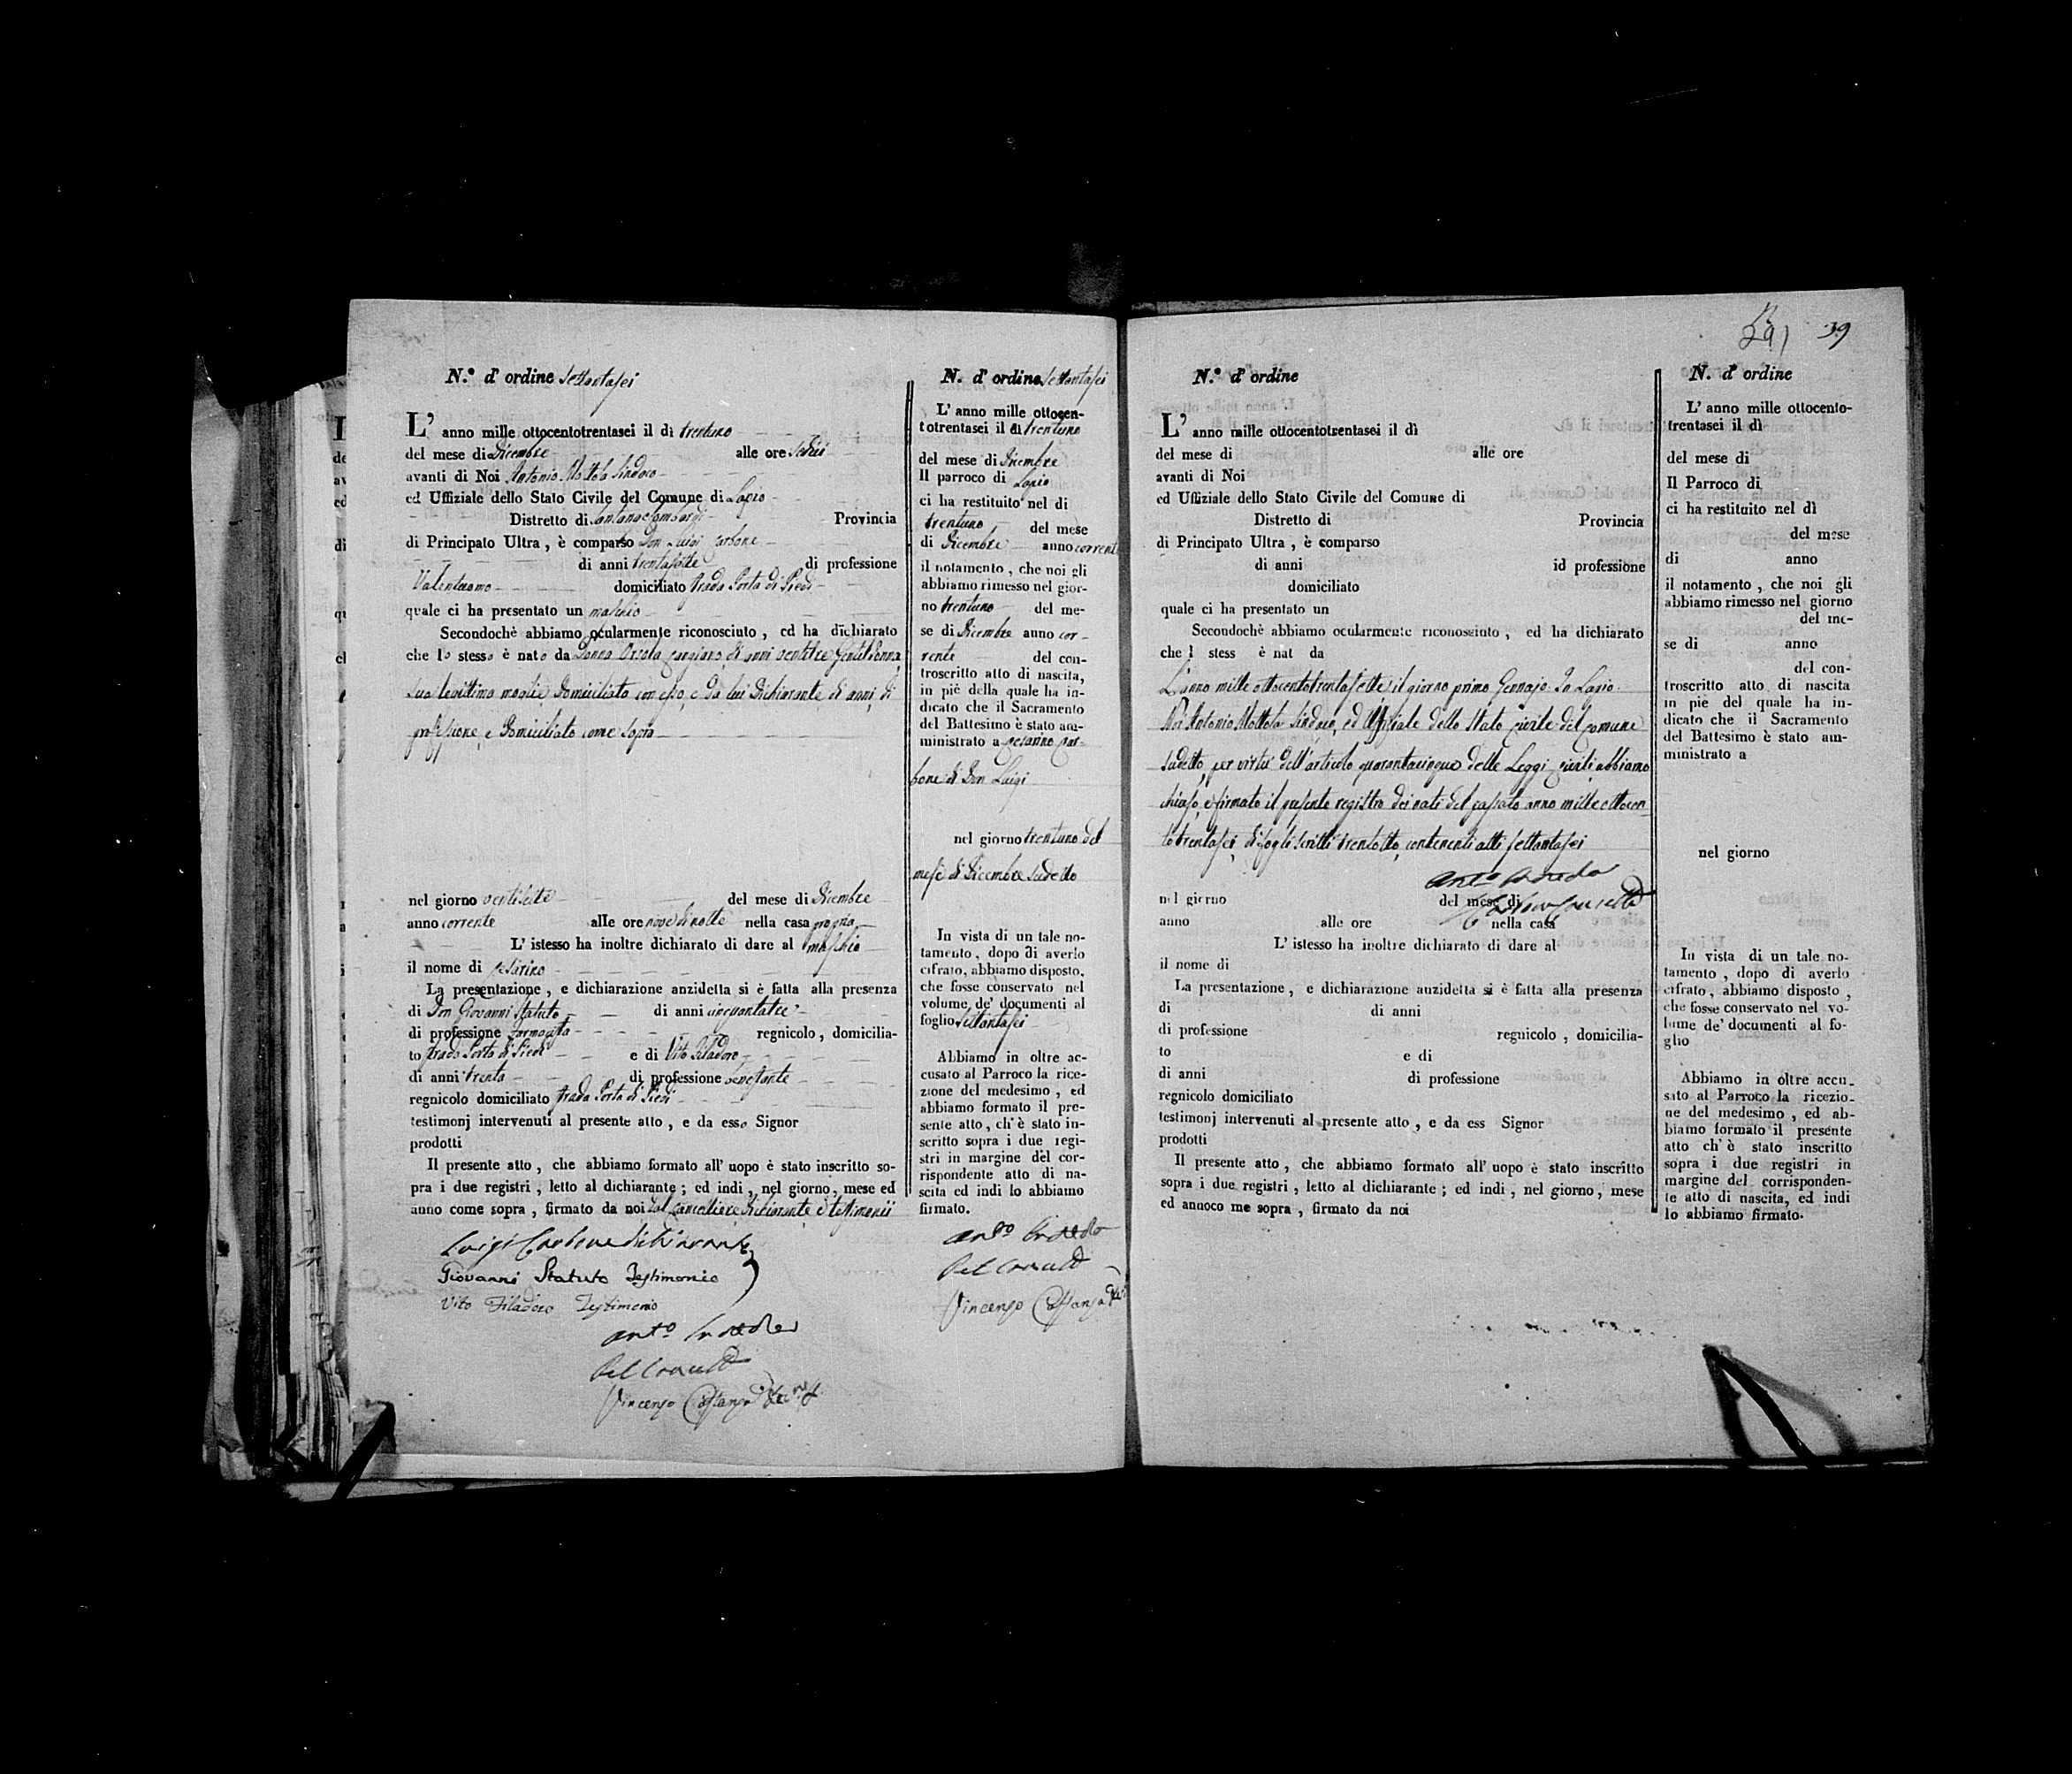 N.º d' ordine Settantasei
L' anno mille ottocentotrentasei il dì trentuno
del mese di Dicembre alle ore sedici
avanti di Noi Antonio Mottola Sindaco
ed Uffiziale dello Stato Civile del Comune di Lapio
Distretto di Santangelo Lombardi Provincia
di Principato Ultra, è comparso Don Luigi Carbone
di anni trentasette di professione
Valentuomo domiciliato strada Porta di Piedi
quale ci ha presentato un maschio
Secondochè abbiamo ocularmente riconosciuto, ed ha dichiarato
che lo stesso è nato da Donna Orsola di anni ventitre Gentildonna
sua legittima moglie, domiciliata con esso, e da lui dichiarante di anni, di
professione, e domiciliato come sopra
nel giorno ventisette del mese di Dicembre
anno corrente alle ore nove di notte nella casa propria
L' istesso ha inoltre dichiarato di dare al maschio
il nome di Cesarino
La presentazione, e dichiarazione anzidetta si è fatta alla presenza
di Don Giovanni Statuto di anni cinquantatre
di professione regnicolo, domicilia-
to strada Porta di Piedi e di Vito Filadoro
di anni trenta di professione benestante
regnicolo domiciliato strada Porta di Piedi
testimonj intervenuti al presente atto, e da esso Signor
prodotti
Il presente atto, che abbiamo formato all' uopo è stato inscritto so-
pra i due registri, letto al dichiarante; ed indi, nel giorno, mese ed
anno come sopra, firmato da noi dal Cancelliere dichiarante e testimonii
Luigi Carbone dichiarante
Giovanni Statuto Testimonio
Vito Filadoro Testimonio
Vincenzo
N. d' ordine Settantasei
L' anno mille ottocen-
totrentasei il dì trentuno
del mese di Dicembre
Il parroco di Lapio
ci ha restituito nel dì
trentuno del mese
di Dicembre anno corrente
il notamento, che noi gli
abbiamo rimesso nel gior-
no trentuno del me-
se di Dicembre anno cor-
rente del con-
troscritto atto di nascita,
in piè della quale ha in-
dicato che il Sacramento
del Battesimo è stato am-
ministrato a Cesarino Car-
bone di Don Luigi
nel giorno trentuno del
mese di Dicembre sudetto
In vista di un tale no-
tamento, dopo di averlo
cifrato, abbiamo disposto,
che fosse conservato nel
volume de' documenti al
foglio settantasei
Abbiamo in oltre ac-
cusato al Parroco la rice-
zione del medesimo, ed
abbiamo formato il pre-
sente atto, ch' è stato in-
scritto sopra i due regi-
stri in margine del cor-
rispondente atto di na-
scita ed indi lo abbiamo
firmato.
Vincenzo
39
N.º d' ordine
L' anno mille ottocentotrentasei il dì
del mese di alle ore
avanti di Noi
ed Uffiziale dello Stato Civile del Comune di
Distretto di Provincia
di Principato Ultra, è comparso
di anni id professione
domiciliato
quale ci ha presentato un
Secondochè abbiamo ocularmente riconosciuto, ed ha dichiarato
che l stess è nat da
L'anno mille ottocentotrentasette il giorno primo Gennajo. In Lapio
Noi Antonio Mottola Sindaco, ed Uffiziale dello Stato Civile del Comune
sudetto, per virtù dell'articolo quarantacinque delle Leggi Civili abbiamo
chiuso, e firmato il presente registro dei nati del passato anno mille ottocen
totrentasei, di fogli scritti trentotto, contenenti atti settantasei
nel giorno del mese di
anno alle ore nella casa
L' istesso ha inoltre dichiarato di dare al
il nome di
La presentazione, e dichiarazione anzidetta si è fatta alla presenza
di di anni
di professione regnicolo, domicilia-
to e di
di anni di professione
regnicolo domiciliato
testimonj intervenuti al presente atto, e da ess Signor
prodotti
Il presente atto, che abbiamo formato all' uopo è stato inscritto
sopra i due registri, letto al dichiarante; ed indi, nel giorno, mese
ed annoco me sopra, firmato da noi
N. d' ordine
L' anno mille ottocento-
trentasei il dì
del mese di
Il Parroco di
ci ha restituito nel dì
del mese
di anno
il notamento, che noi gli
abbiamo rimesso nel giorno
del me-
se di anno
del con-
troscritto atto di nascita
in piè del quale ha in-
dicato che il Sacramento
del Battesimo è stato am-
ministrato a
nel giorno
In vista di un tale no-
tamento, dopo di averlo
cifrato, abbiamo disposto,
che fosse conservato nel vo-
lume de' documenti al fo-
glio
Abbiamo in oltre accu-
sato al Parroco la ricezio-
ne del medesimo, ed ab-
biamo formato il presente
atto ch' è stato inscritto
sopra i due registri in
margine del corrisponden-
te atto di nascita, ed indi
lo abbiamo firmato.